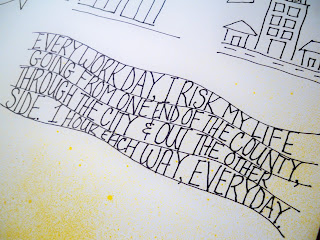 EVERY WORK DAY, I RISK MY LIFE
GOING FROM ONE END OF THE COUNTY,
THROUGH THE CITY & OUT THE OTHER
SIDE. 1 HOUR EACH WAY, EVERYDAY.